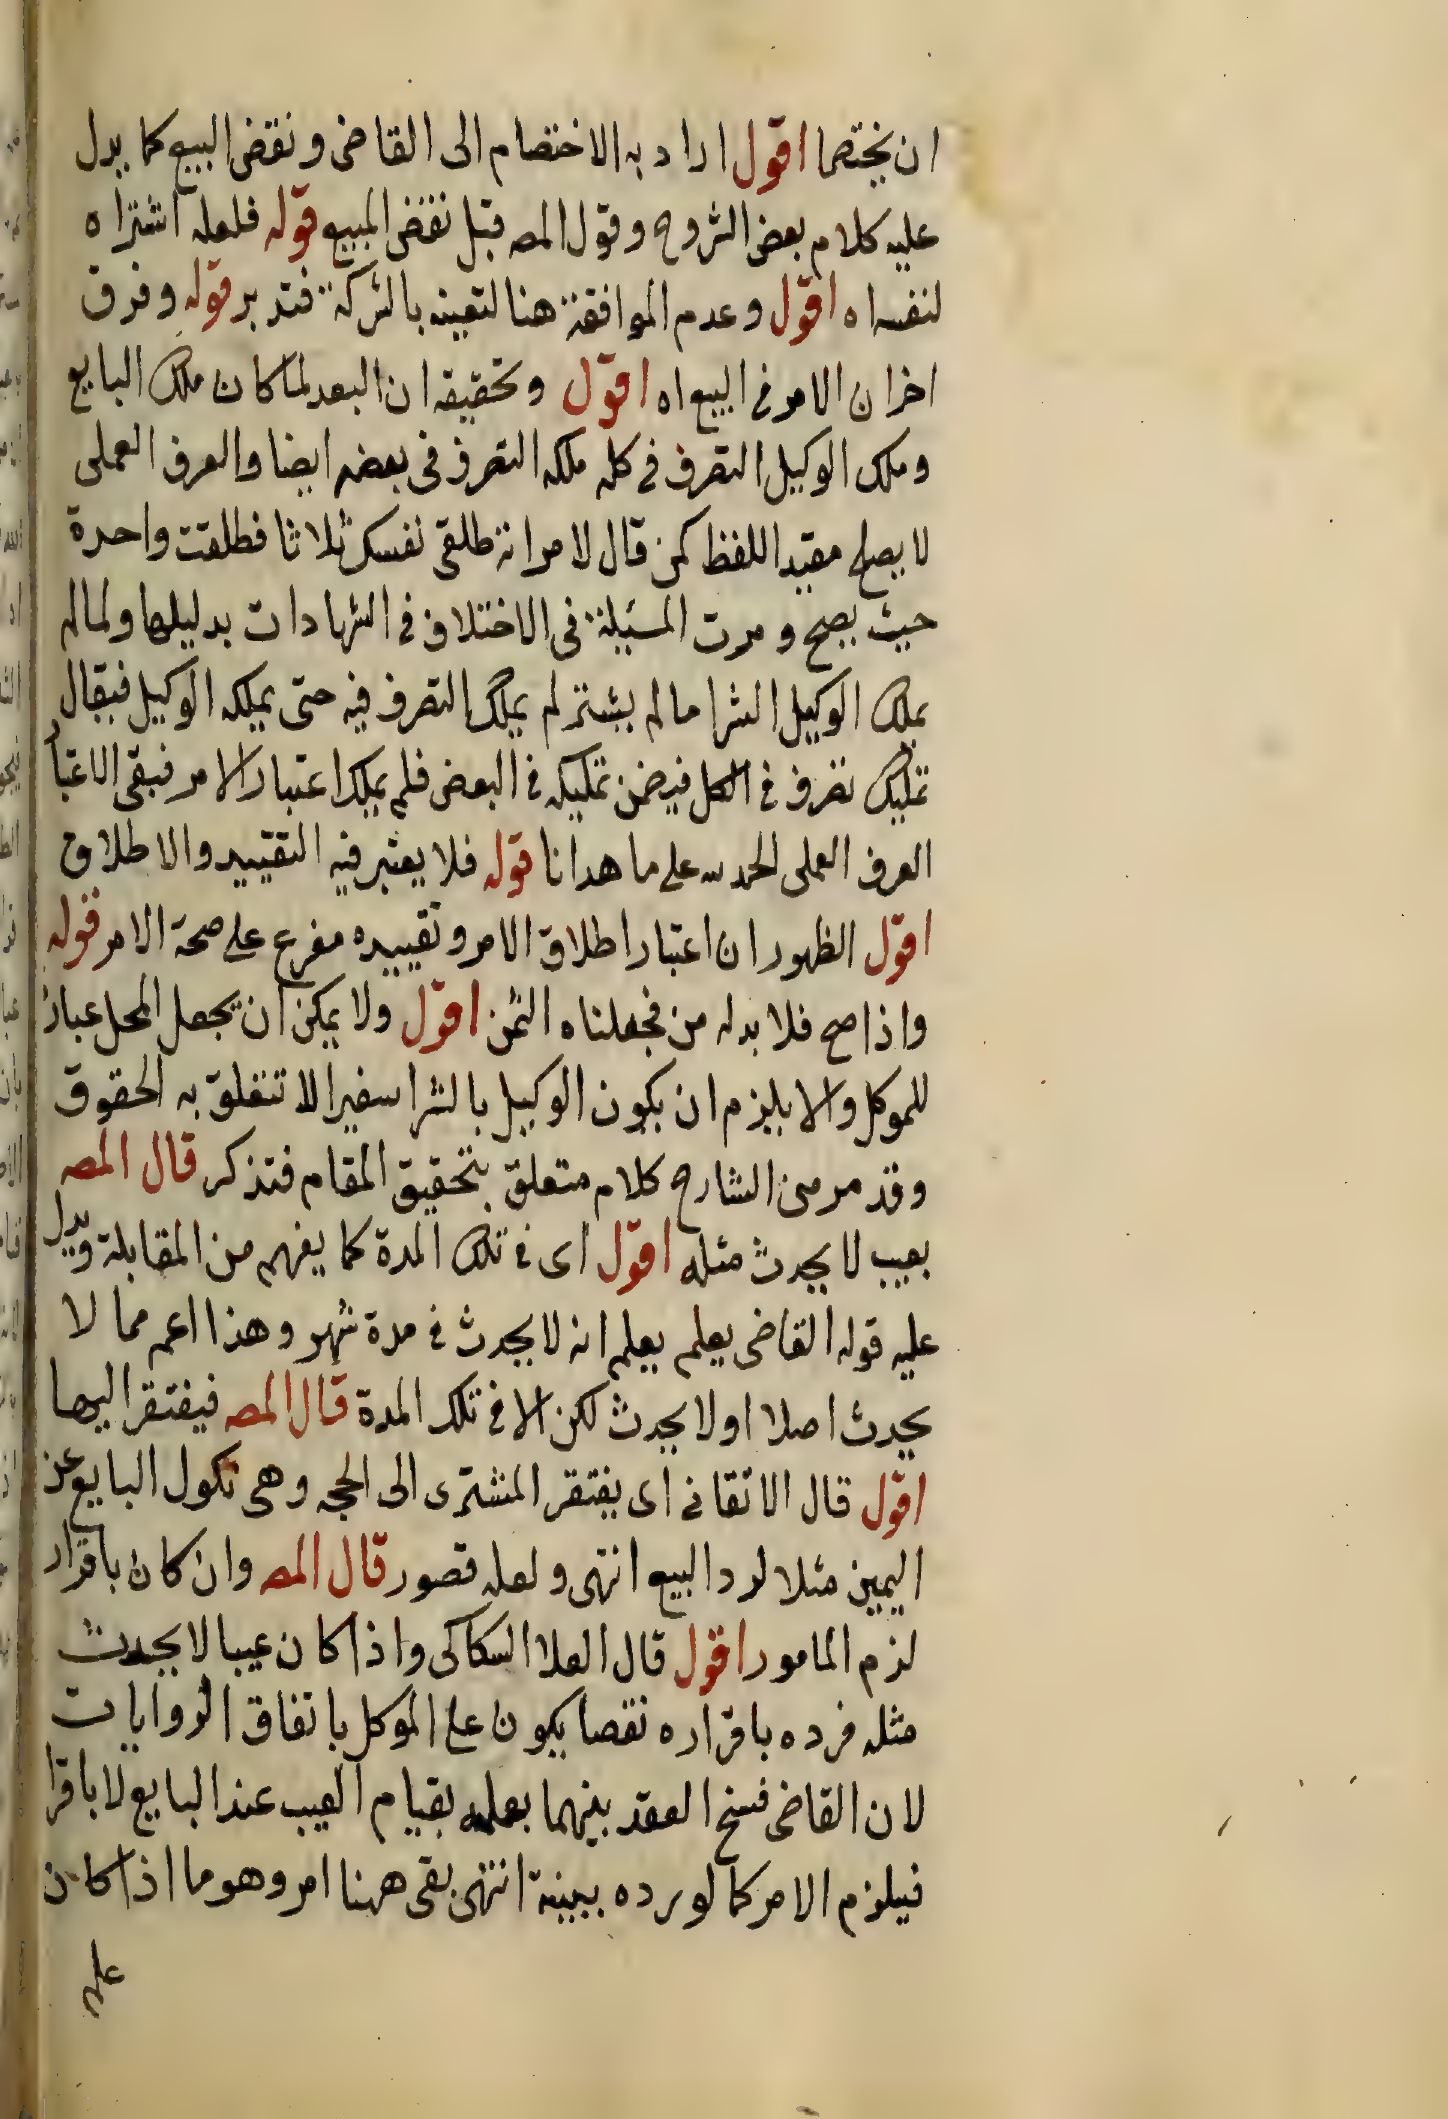 ان يختصما اقول اراد به الاختصام الى القاضى ونقض البيع كما يدل
عليه كلام بعض الشروح وقول المص قبل نقض المبيع قوله فلعله اشتراه
لنفسه اه اقول وعدم الموافقة هنا لتعينه بالشركة فتدبر قوله وفرق
اخر ان الامر فى البيع اه اقول وتحقيقه ان البعد لما كان ملك البايع
وملك الوكيل التصرف فى كله ملكه التصرف فى بعضه ايضا والعرف العملى
لا يصلح مقيد اللفظ كمن قال لامراته طلقى نفسك ثلاثا فطلقت واحدة
حيث يصح ومرت المسئلة فى الاختلاف فى الشهادات بدليلها ولما لم
يملك الوكيل الشرا ما لم يشتر لم يملك التصرف فيه حتى يملكه الوكيل فيقال
تمليك تصرف فى الكل فيضمن تمليكه فى البعض فلم يملك اعتبار الامر فبقى الاعتبار
العرف العملى الحمد لله على ما هدانا قوله فلا يعتبر فيه التقييد والاطلاق
اقول الظهور ان اعتبار اطلاق الامر وتقييده مفرع على صحة الامر قوله
واذا صح فلا بد له من فجعلناه الثمن اقول ولا يمكن ان يجعل المحل عبارة
للموكل والا يلزم ان يكون الوكيل بالشرا سفيرا لا تتعلق به الحقوق
وقد مر من الشارح كلام متعلق بتحقيق المقام فتذكر قال المص
بعيب لا يحدث مثله اقول اى فى تلك المدة كما يفهم من المقابلة ويدل
عليه قوله القاضى يعلم يعلم انه لا يحدث فى مدة شهر وهذا اعم مما لا
يحدث اصلا او لا يحدث لكن الا فى تلك المدة قال المص فيفتقر اليها
اقول قال الاتقانى اى يفتقر المشترى الى الحجه وهى نكول البايع عن
اليمين مثلا لرد البيع انتهى ولعله قصور قال المص وان كان باقرار
لزم المامور اقول قال العلا السكاكى واذا كان عيبا لا يحدث
مثله فرده باقراره نقصا يكون على الموكل باتفاق الروايات
لان القاضى فسخ العقد بينهما بعلمه بقيام العيب عند البايع لا باقرا
فيلزم الامر كما لو رده ببينة انتهى بقى ههنا امر وهو ما اذا كان
عليه